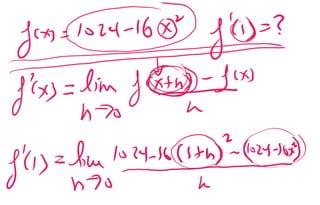 f(x) = 1024-16x² f'(1) = ?
f'(x) = lim h→0 f(x+h) - f(x) / h
f'(1) = lim h→0 1024-16(1+h)² - (1024-16x²) / h